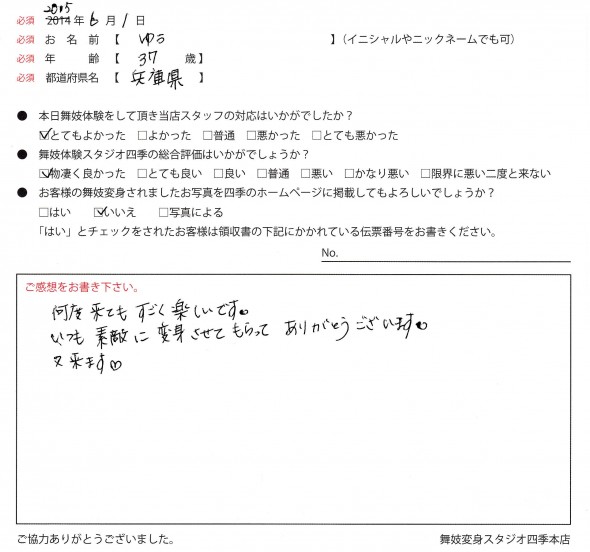 2015
必須 2014 年 6 月 1 日
必須 お 名 前 【 ゆう 】(イニシャルやニックネームでも可)
必須 年 齢 【 37 歳】
必須 都道府県名 【 兵庫県 】
● 本日舞妓体験をして頂き当店スタッフの対応はいかがでしたか?
☑とてもよかった □よかった □普通 □悪かった □とても悪かった
● 舞妓体験スタジオ四季の総合評価はいかがでしょうか?
☑物凄く良かった □とても良い □良い □普通 □悪い □かなり悪い □限界に悪い二度と来ない
● お客様の舞妓変身されましたお写真を四季のホームページに掲載してもよろしいでしょうか?
□はい ☑いいえ □写真による
「はい」とチェックをされたお客様は領収書の下記にかかれている伝票番号をお書きください。
No.
ご感想をお書き下さい。
何度来てもすごく楽しいです。
いつも素敵に変身させてもらってありがとうございます♡
又来ます♡
ご協力ありがとうございました。
舞妓変身スタジオ四季本店